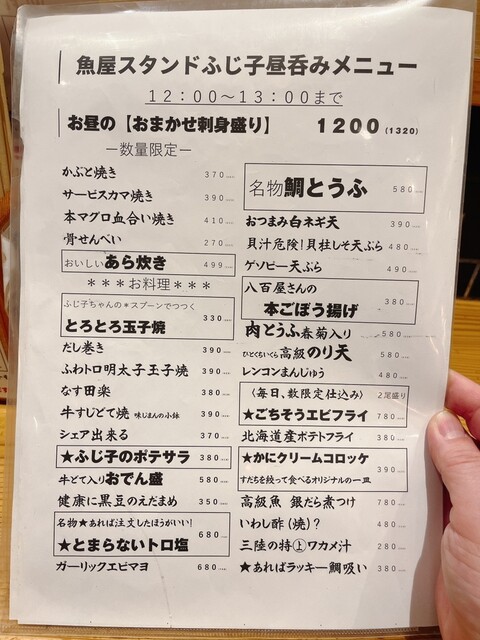 魚屋スタンドふじ子昼呑みメニュー
12:00〜13:00まで
お昼の【おまかせ刺身盛り】 1200(1320)
ー数量限定ー
かぶと焼き 370
サービスカマ焼き 390
本マグロ血合い焼き 410
骨せんべい 270
おいしいあら炊き 499
＊＊＊お料理＊＊＊
ふじ子ちゃんの＊スプーンでつつく
とろとろ玉子焼 330
だし巻き 390
ふわトロ明太子玉子焼 390
なす田楽 380
牛すじどて焼 味じまんの小鉢 390
シェア出来る 370
★ふじ子のポテサラ 380
牛どて入りおでん盛 580
健康に黒豆のえだまめ 350
名物★あれば注文したほうがいい!
★とまらないトロ塩 680
ガーリックエビマヨ 680
名物鯛とうふ 580
おつまみ白ネギ天 390
貝汁危険!貝柱しそ天ぷら 480
ゲソピー天ぷら 490
八百屋さんの
本ごぼう揚げ 380
肉とうふ春菊入り 580
ひとくちいくら高級のり天 580
レンコンまんじゅう 480
〈毎日、数限定仕込み〉 2尾盛り
★ごちそうエビフライ 780
北海道産ポテトフライ 380
★かにクリームコロッケ 390
すだちを絞って食べるオリジナルの一皿
高級魚 銀だら煮つけ 780
いわし酢(焼)? 480
三陸の特㊤ワカメ汁 280
★あればラッキー鯛吸い 380